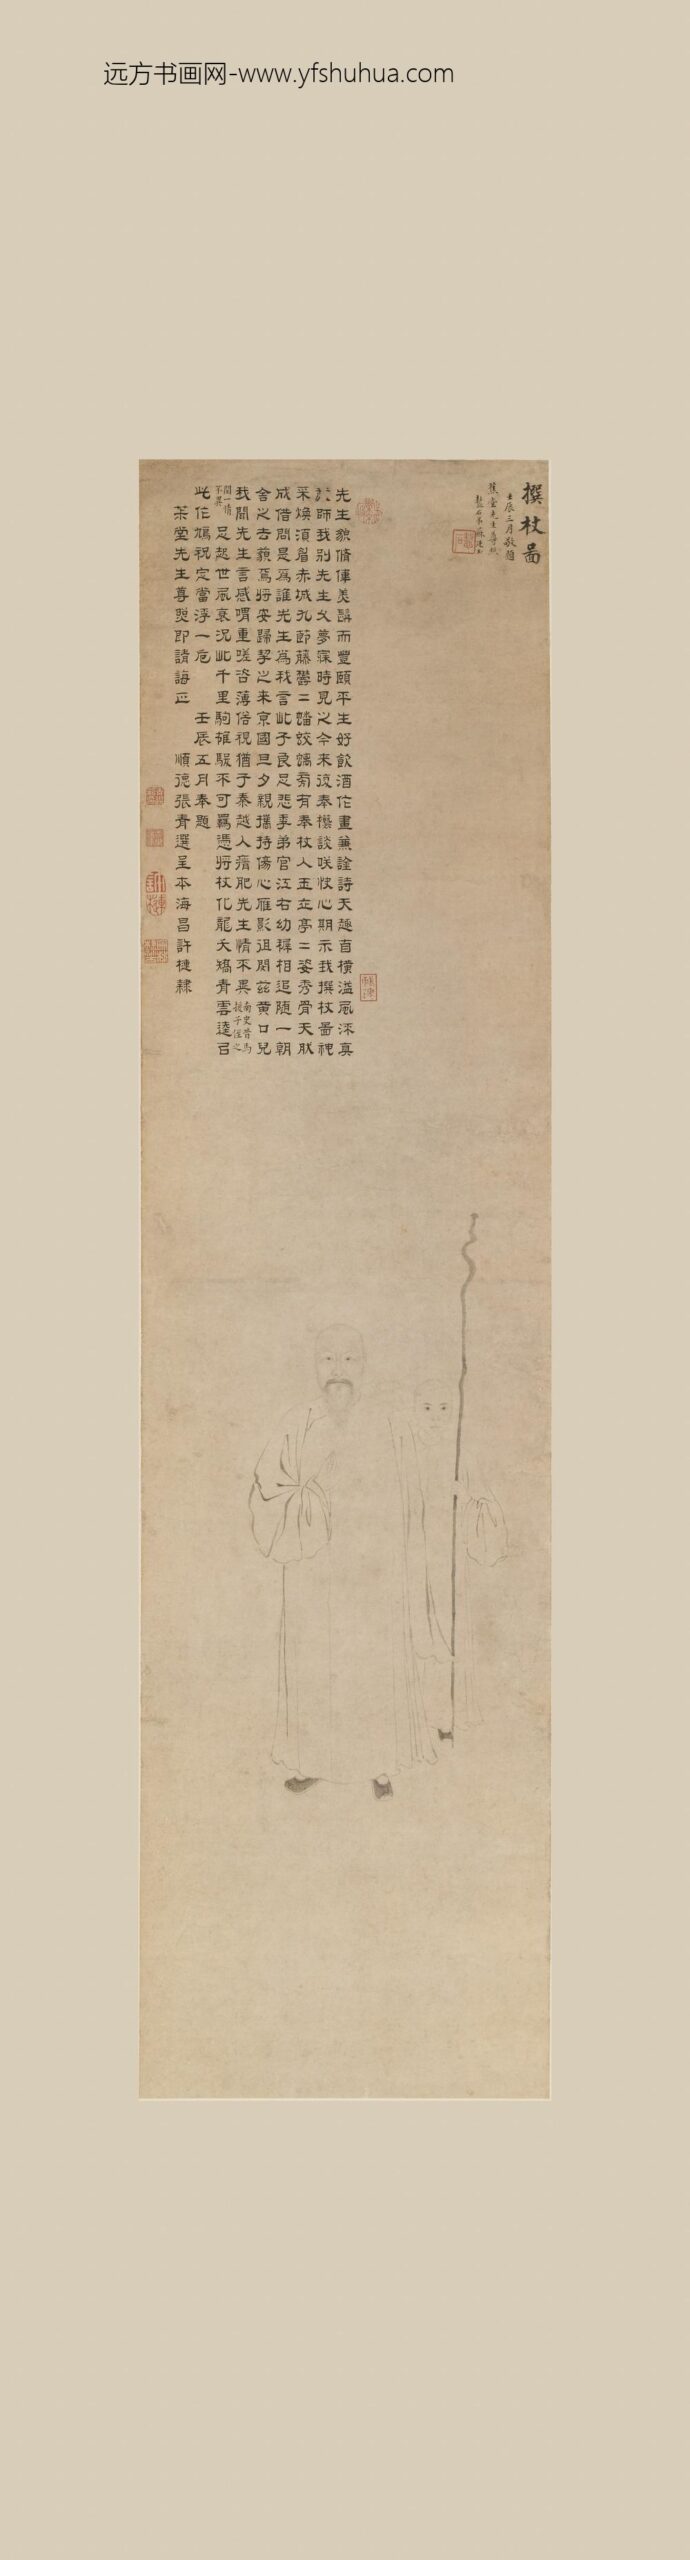 远方书画网-www.yfshuhua.com
撰杖啚
壬辰三月敬題
蕉堂先生
先生貌脩偉美鬍而豐頤平生好飲酒作畫兼詮詩天趣自橫溢風流真
師我別先生久夢寐時見之今來復奉襟談咲快心期示我撰杖啚神
采煥須眉赤城九節藤鬱二蟠蛟螭旁有奉杖人玉立亭二姿秀骨天肰
成借問是為誰先生為我言此子良足悲季弟官江右幼穉相追隨一朝
舍之去藐焉將安歸挈之来京國旦夕親攜持傷心雁影徂閔茲黃口兒
我聞先生言感喟重嗟咨薄俗視猶子秦越人瘠肥先生情不異
南史昔馬
援子侄之
間一情
不異
足起世風衰況此千里駒雄駿不可羈憑將杖化龍夭矯青雲逵吕
此作鳩祝定當浮一卮 壬辰五月奉題
茶堂先生尊照即請誨正 順德張青選呈本海昌許槤隸